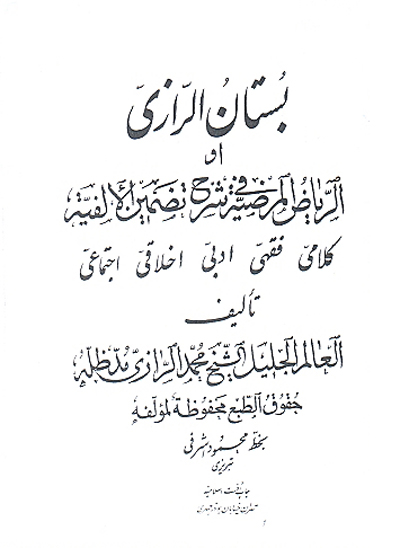 بُستان الرّازیّ
او
الرّیاض المرضیّة فی شرح تضمین الألفیّة
کلامیّ فقهیّ ادبیّ اخلاقیّ اجتماعیّ
تألیف
العالم الجلیل الشّیخ محمّد الرّازیّ مدّ ظلّه
حُقُوقُ الطّبع محفوظة لمؤلّفه
بخطّ محمود اشرفی
تبریزی
چاپ افست اسلامیه
تهران خیابان بوذرجمهری